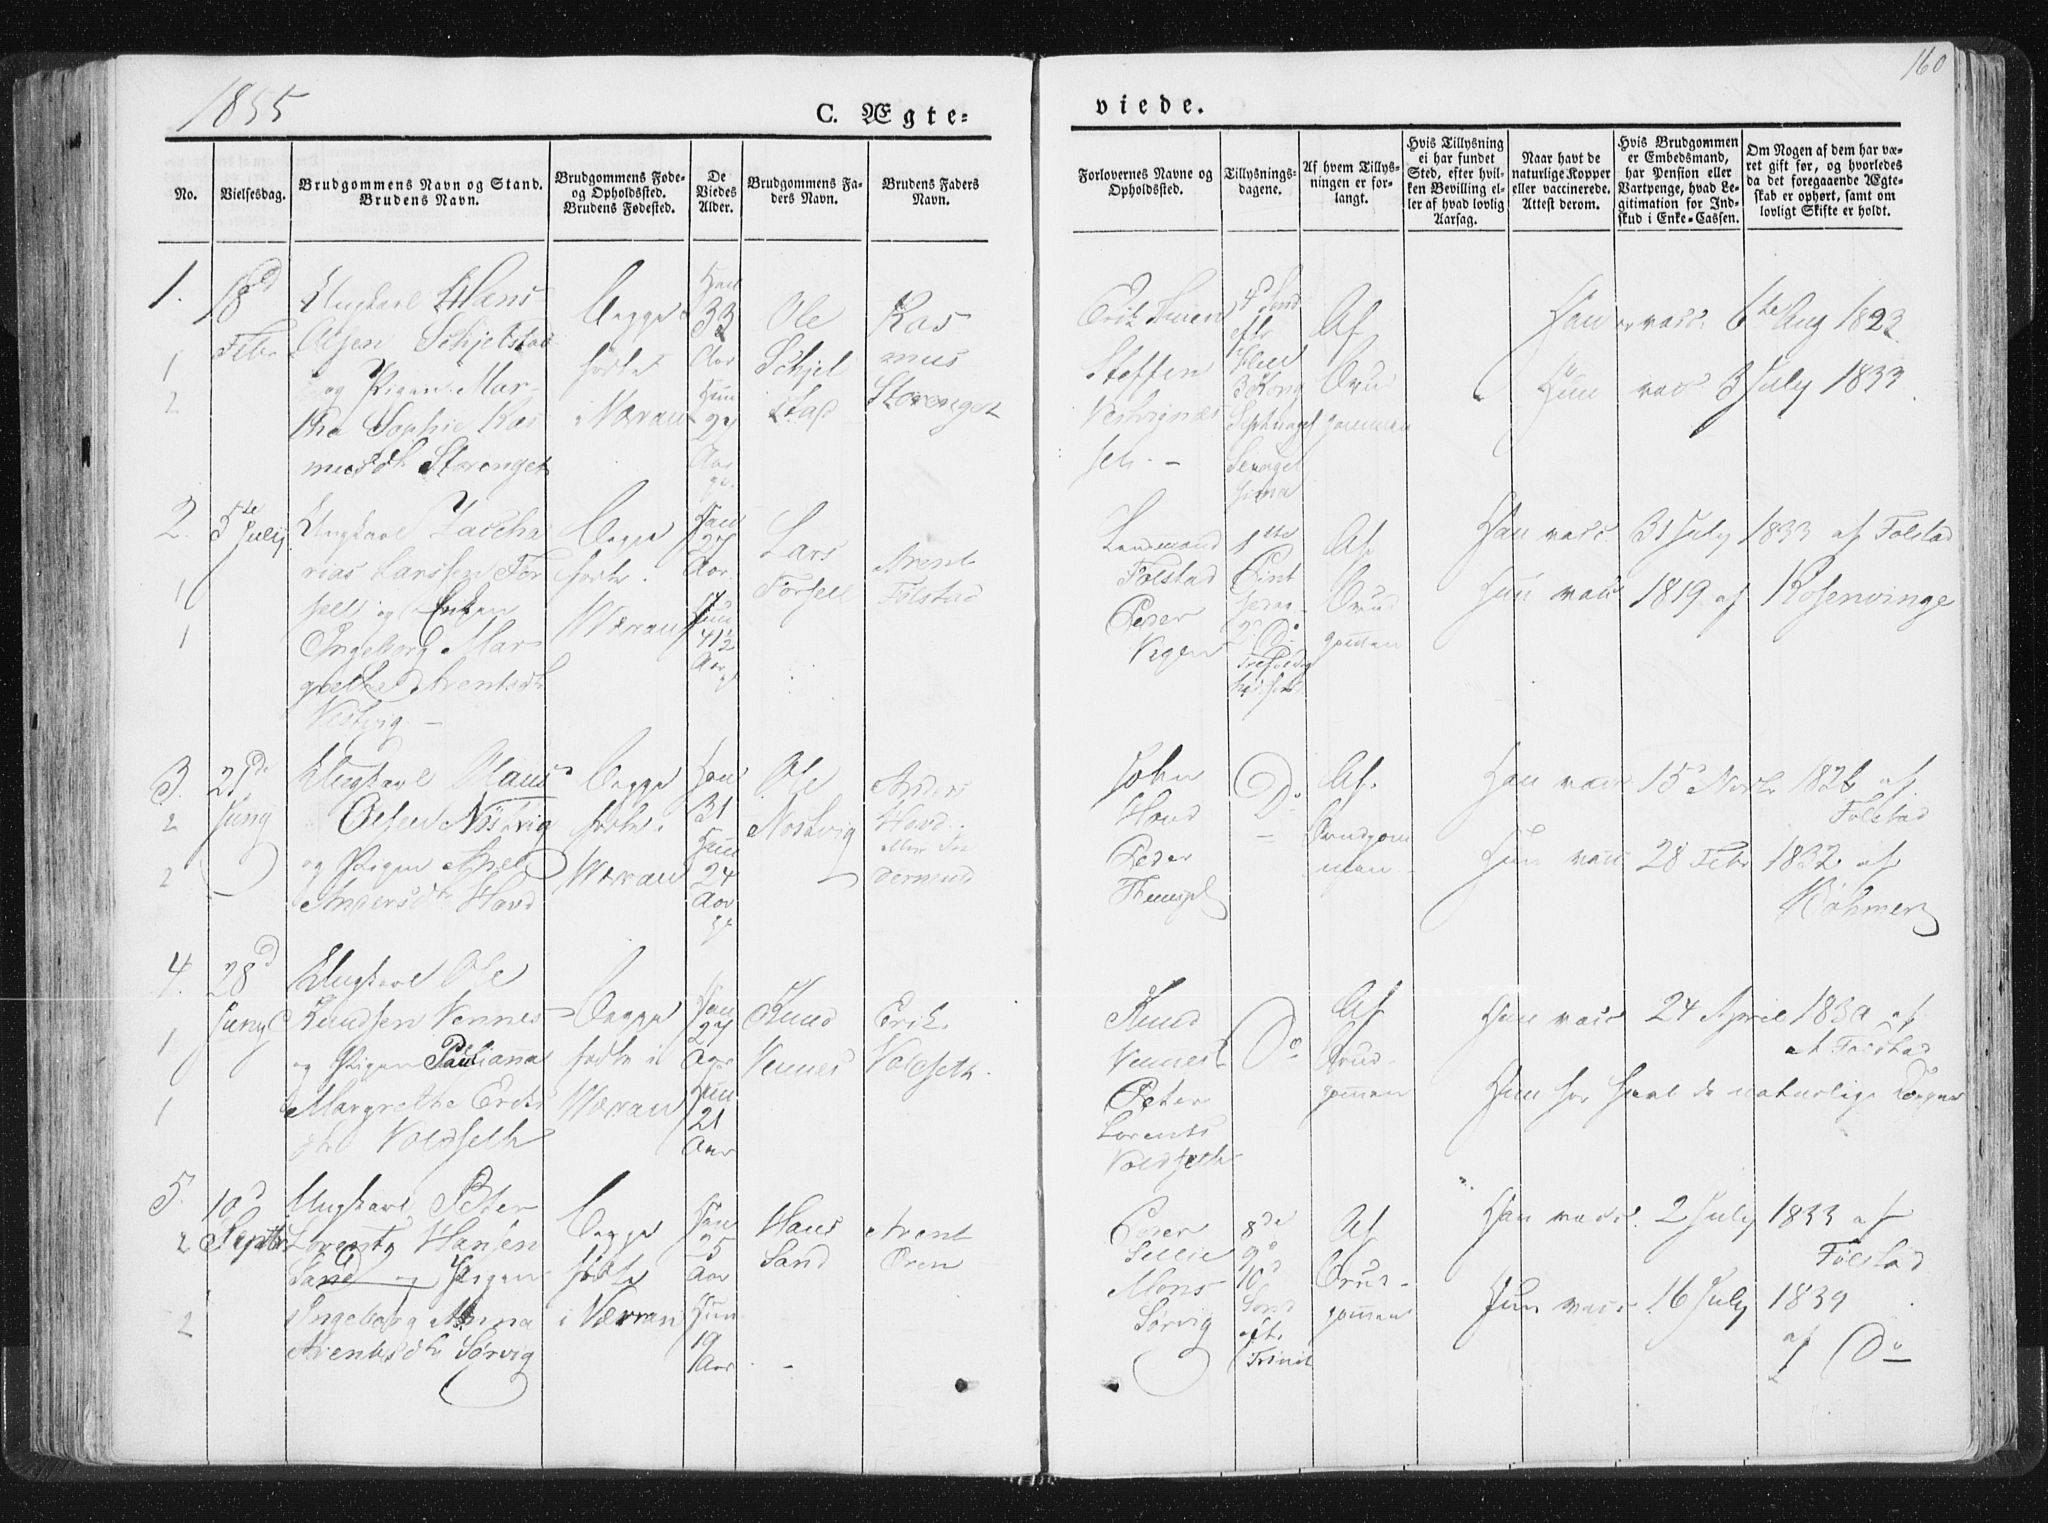 1855
C. Ægte=
viede.
160
No.
Vielsesdag.
Brudgommens Navn og Stand.
Brudens Navn.
Brudgommens Føde=
og Opholdssted.
Brudens Fødested.
De
Viedes
Alder.
Brudgommens Fa=
ders Navn.
Brudens Faders
Navn.
Forlovernes Navne og
Opholdssted.
Tillysnings=
dagene.
Af hvem Tillys=
ningen er for=
langt.
Hvis Tillysning
ei har fundet
Sted, efter hvil=
ken Bevilling el=
ler af hvad lovlig
Aarsag.
Naar havt de
naturlige Kopper
eller vaccinerede.
Attest derom.
Hvis Brudgommen
er Embedsmand,
har Pension eller
Vartpenge, hvad Le=
gitimation for Ind=
skud i Enke=Cassen.
Om Nogen af dem har væ=
ret gift før, og hvorledes
da det foregaaende Ægte=
skab er ophørt, samt om
lovligt Skifte er holdt.
1.
18d
Febr
1
2
Ungkarl Hans
Olsen Schjelstad
og Pigen Mar=
tha Sophie Ras
musdtr Storenget
Begge
fødte
i Værran
Han
33
Aar
Hun
27
Aar
Ole
Schjel
stad
Ras
mus
Storenget
Erik
Steffen
Af
Brud
gommen
Han vacc: 6te Aug 1823
Hun vac 3 July 1833
2.
5te July
1
1
Ungkarl Zaccha
rias Larssen For
sell og Enken
Ingeborg Mar
grethe Arentsdtr
Vestvig
Begge
fødte i
Værran
Han
27
Aar
Hun
41½
Aar
Lars
Forsell
Arent
Folstad
Lendsmand
Folstad
Peder
Vigen
1ste
Pint
sedag
2 Do
Af
Brud
gommen
Han vacc 31 July 1833 af Folstad
Hun vacc 1819 af Rosenvinge
3.
21de
Juny
2
2
Ungkarl Claus
Olsen Nøstvig
og Pigen
Andersdtr Hovd
Begge
fødte i
Værran
Han
31
Hun
24
Aar
Ole
Nøstvig
Anders
Hovd
eller
John
Hovd
Peder
Do
Af
Brudgom
men
Han vacc 15d Novbr 1826 af
Folstad
Hun vacc 28 Febr 1832 af
Bøhmer
4.
28d
Juny
1
1
Ungkarl Ole
Knudsen Vennes
og Pigen Paulianna
Margrethe Eriks
dtr Voldseth
Begge
fødte i
Værran
Han
27
Aar
Hun
21
Aar
Knud
Vennes
Erik
Voldseth
Knud
Vennes
Peter
Lorents
Voldseth
Do
Af
Brud
gommen
Han vacc 24 April 1830 af
Folstad
Hun har havt de naturlige Kopper
5.
10d
Septbr
2
2
Ungkarl Peter
Lorents Hansen
Sand og Pigen
Ingeborg Anna
Arentsdtr Sørvig
Begge
fødte
i Værran
Han
25
Aar
Hun
19
Aar
Hans
Sand
Arent
Øren
Peder
Sellie
Mons
Sørvig
8de
9d
10d
Sønd
eft
Trinit
Af
Brud
gommen
Han vacc. 2 July 1833 af
Folstad
Hun vacc. 16 July 1839
af Do